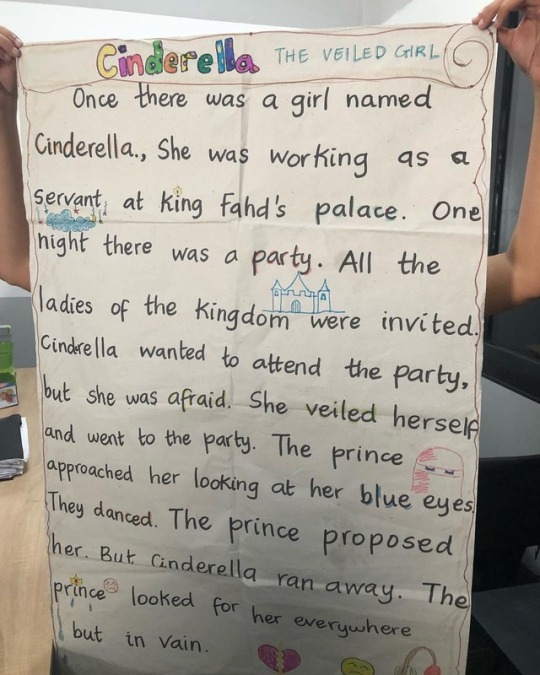 Cinderella THE VEILED GIRL
Once there was a girl named
Cinderella., She was working as a
servant, at king Fahd's palace. One
night there was a party. All the
ladies of the kingdom were invited.
Cindrella wanted to attend the party,
but she was afraid. She veiled herself
and went to the party. The prince
approached her looking at her blue eyes
They danced. The prince proposed
her. But Cinderella ran away. The
prince looked for her everywhere
but in vain.